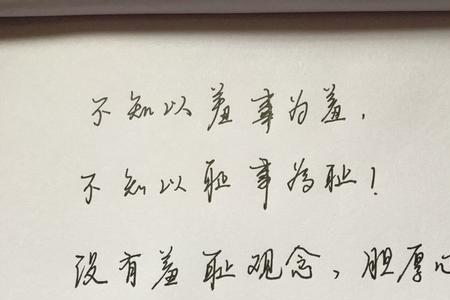 不知以羞事为羞，
不知以耻事為耻！
没有羞耻观念、胆厚